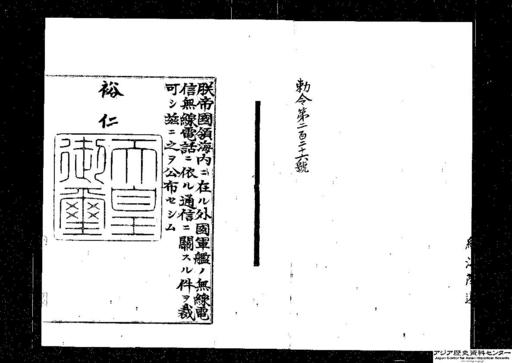 勅令第二百二十六號
朕帝國領海内ニ在ル外國軍艦ノ無線電
信無線電話ニ依ル通信ニ關スル件ヲ裁
可シ茲ニ之ヲ公布セシム
裕仁
天皇
御璽
アジア歴史資料センター
Japan Center for Asian Historical Records